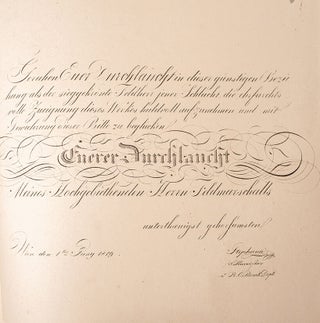 Geruhen Euer Durchlaucht in dieser günstigen Bezie
hung als der sieggekrönte Feldherr jener Schlacht, die ehrfurchts
volle Zueignung dieses Werkes huldvoll aufzunehmen und mit
Gewährung dieser Bitte zu beglücken
Euerer Durchlaucht
Meines Hochgebiethenden Herrn Feldmarschalls
unterthänigst gehorsamster
Wien den 1ten Juny 1819.